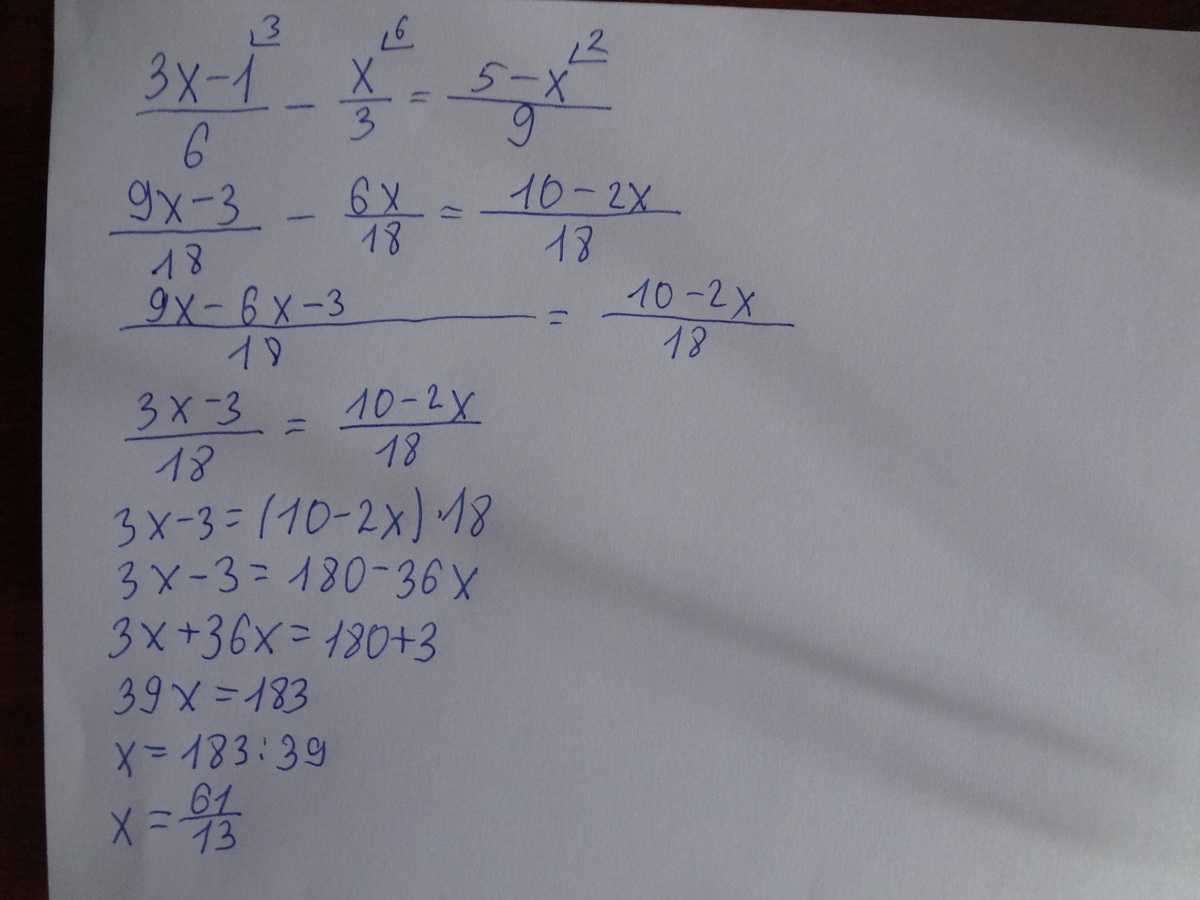 (3x-1)/6 ⌞3 - x/3 ⌞6 = (5-x)/9 ⌞2
(9x-3)/18 - 6x/18 = (10-2x)/18
(9x-6x-3)/18 = (10-2x)/18
(3x-3)/18 = (10-2x)/18
3x-3=(10-2x)·18
3x-3=180-36x
3x+36x=180+3
39x=183
x=183:39
x=61/13